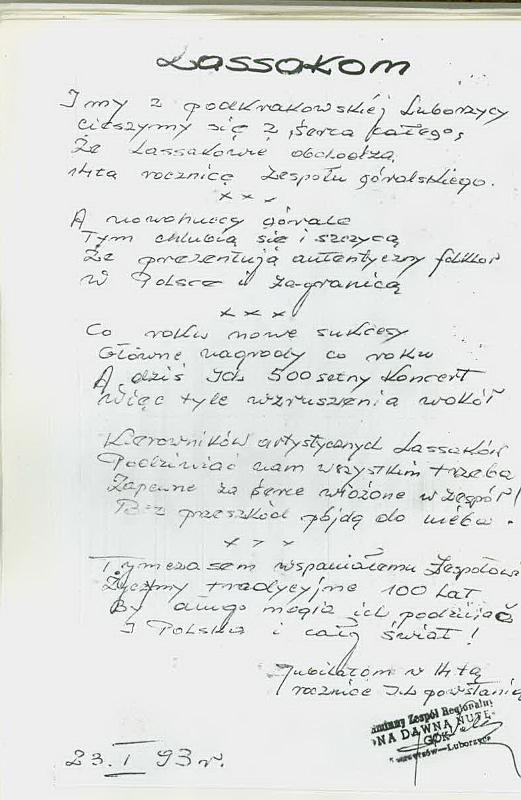 Lassakom
I my z podkrakowskiej Luborzycy
cieszymy się z serca całego,
Że Lassakowie obchodzą
14tą rocznicę Zespołu góralskiego.
x x x
A nowohuccy górale
Tym chlubią się i szczycą
Że prezentują autentyczny folklor
w Polsce i zagranicą
x x x
Co roku nowe sukcesy
Główne nagrody co roku
A dziś Ich 500 setny koncert
Więc tyle wzruszenia wokół
Kierowników artystycznych Lassaków
Podziwiać nam wszystkim trzeba
Zapewne za serce włożone w zespół!
Bez przeszkód pójdą do nieba.
x x x
Tymczasem wspaniałemu Zespołowi
Życzymy tradycyjne 100 lat
By długo mogła ich podziwiać
I Polska i cały świat!
Jubilatom w 14tą
rocznicę Ich powstania
Gminny Zespół Regionalny
"NA DAWNĄ NUTĘ"
GOK
Luborzyca
23.I 93r.